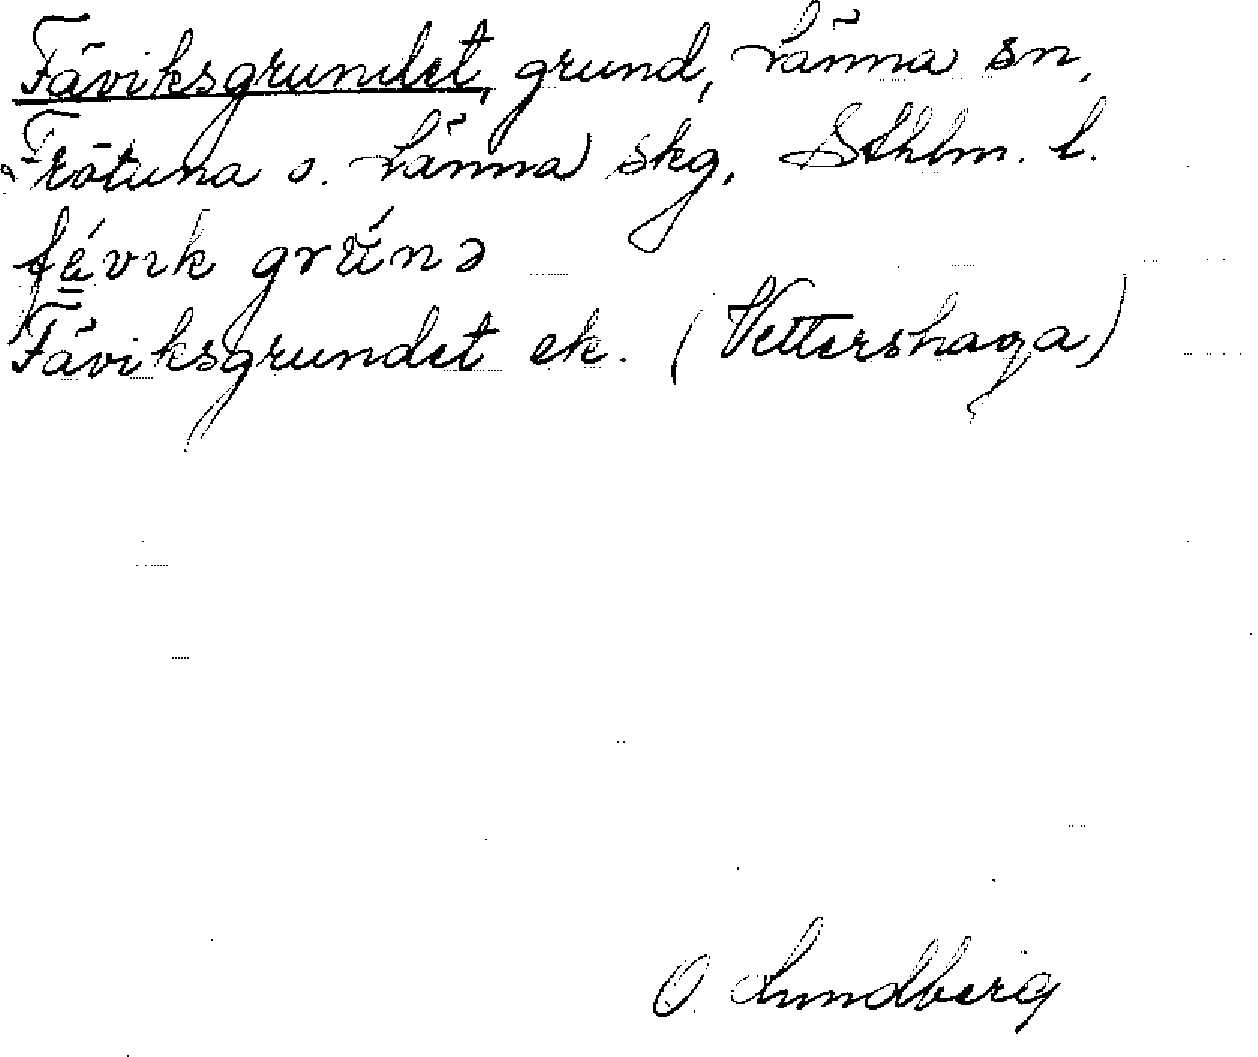 Fåviksgrundet, grund, Länna sn,
Frötuna o. Länna skg, Sthlm. l.
fávık grúnə
Fåviksgrundet ek. (Vettershaga)
O. Lundberg